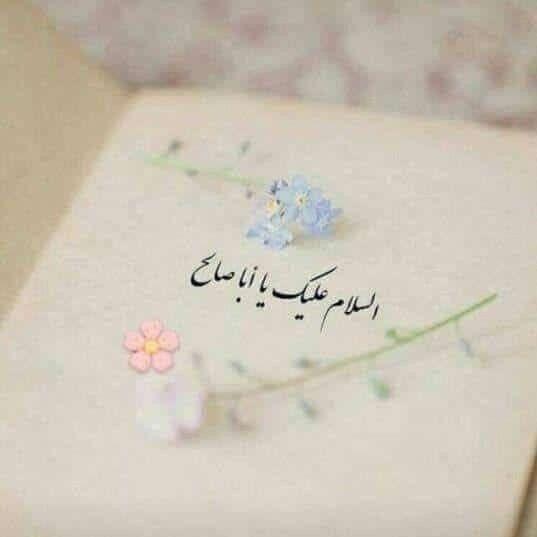 السلام علیک یا أبا صالح